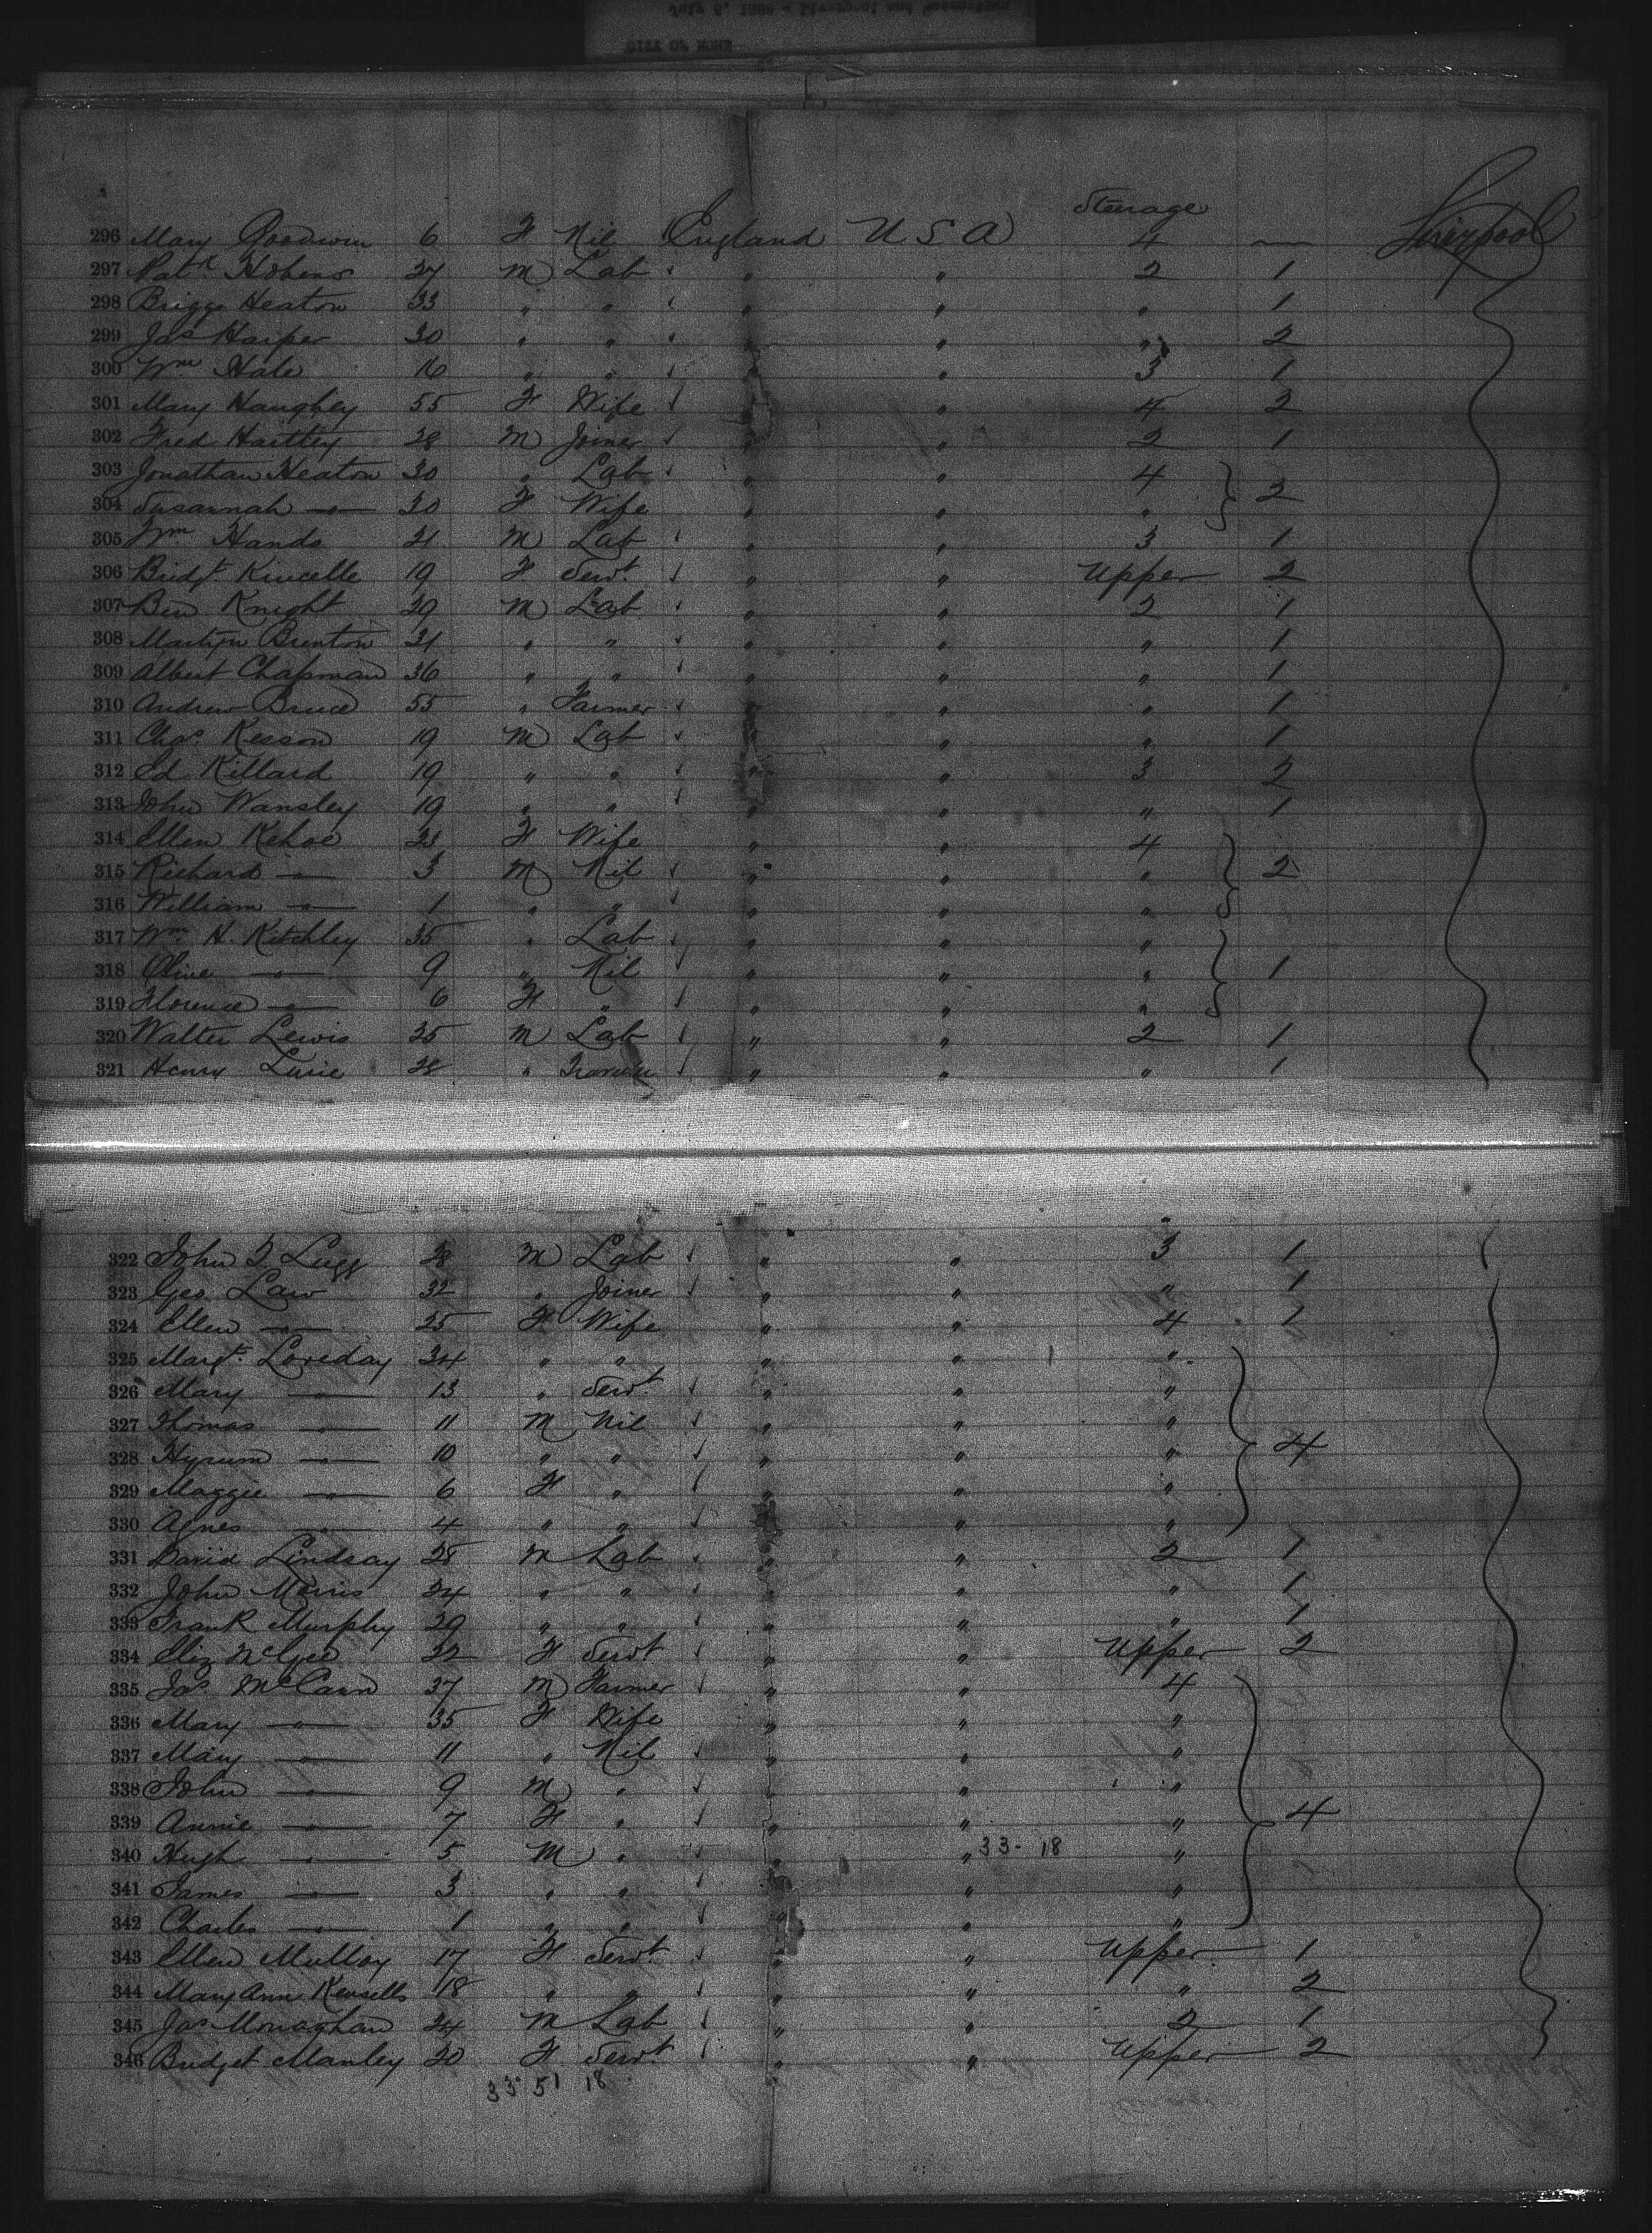 Steerage
296 Mary Goodwin 6 F Nil England U S A 4 — Liverpool
297 Patk Hobens 27 M Lab " " 2 1
298 Briggs Heaton 33 " " " " " 1
299 Jas Harper 30 " " " " " 2
300 Wm Hale 16 " " " " 3 1
301 Mary Haughey 55 F Wife " 4 2
302 Fred Hartley 28 M Joiner " " 2 1
303 Jonathan Heaton 30 " Lab " " 4
304 Susannah —"— 30 F Wife " " " 2
305 Wm Hands 21 M Lab " " 3 1
306 Bridgt Kincelle 19 F Servt " " Upper 2
307 Ben Knight 29 M Lab " " 2 1
308 Martyn Brenton 31 " " " " " 1
309 Albert Chapman 36 " " " " " 1
310 Andrew Bruce 55 " Farmer " " " 1
311 Chas. Kesson 19 M Lab " " " 1
312 Ed Killard 19 " " " " 3 2
313 John Wansley 19 " " " " " 1
314 Ellen Kehoe 23 F Wife " " 4
315 Richard —"— 3 M Nil " " " 2
316 William —"— 1 " " " " "
317 Wm H. Kitchley 35 " Lab " " "
318 Olive —"— 9 " Nil " " " 1
319 Florence —"— 6 F " " " "
320 Walter Lewis 35 M Lab " " 2 1
321 Henry Lurie 28 " " " " 1
322 John T. Lugg 28 M Lab " " 3 1
323 Geo. Law 32 " Joiner " " " 1
324 Ellen —"— 25 F Wife " " 4 1
325 Margt. Loveday 34 " " " " "
326 Mary —"— 13 " Servt " " "
327 Thomas —"— 11 M Nil " " "
328 Hyrum —"— 10 " " " " " 4
329 Maggie —"— 6 F " " " "
330 Agnes —"— 4 " " " " "
331 David Lindsay 28 M Lab " " 2 1
332 John Morris 24 " " " " " 1
333 Frank Murphy 29 " " " " " 1
334 Eliz McGee 32 F Servt " " Upper 2
335 Jas. McCann 37 M Farmer " " 4
336 Mary —"— 35 F Wife " " "
337 Mary —"— 11 " Nil " " "
338 John —"— 9 M " " " "
339 Annie —"— 7 F " " " " 4
340 Hugh —"— 5 M " " " 33-18 "
341 James —"— 3 " " " " "
342 Charles —"— 1 " " " " "
343 Ellen Mulloy 17 F Servt " " Upper 1
344 Mary Ann Kensells 18 " " " " " 2
345 Jas Monaghan 24 M Lab " " 2 1
346 Bridget Manley 20 F Servt " " Upper 2
33 51 18